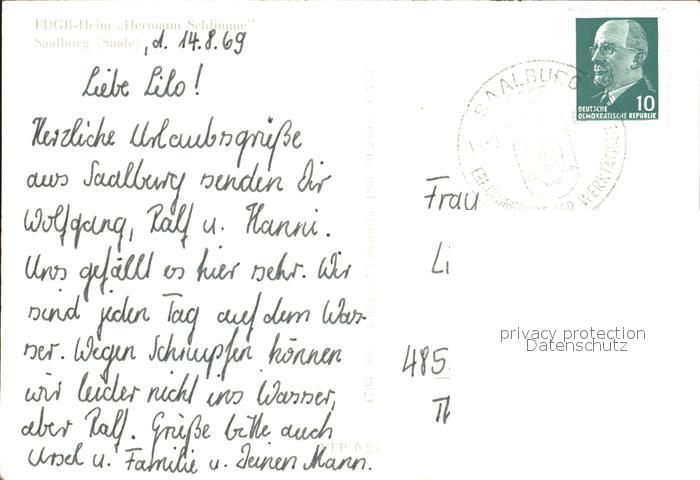 FDGB-Heim „Hermann Schlimme"
Saalburg (Saale)
, d. 14.8.69
Liebe Lilo!
Herzliche Urlaubsgrüße
aus Saalburg senden Dir
Wolfgang, Ralf u. Hanni.
Uns gefällt es hier sehr. Wir
sind jeden Tag auf dem Was-
ser. Wegen Schnupfen können
wir leider nicht ins Wasser,
aber Ralf. Grüße bitte auch
Ursel u. Familie u. Deinen Mann.
EVP 0,25
SAALBURG
DER WERKTÄTIGEN
10
DEUTSCHE
DEMOKRATISCHE REPUBLIK
Frau
Li
485
Th
privacy protection
Datenschutz